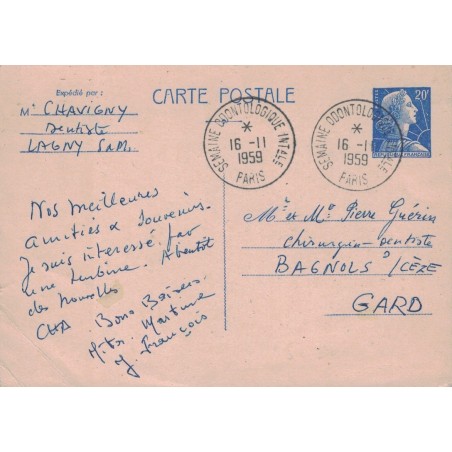 Expédié par :
CARTE POSTALE
20F
RÉPUBLIQUE FRANÇAISE
Mr CHAVIGNY
Dentiste
LAGNY S&M.
SEMAINE ODONTOLOGIQUE INTALE
*
16 - 11
1959
PARIS
SEMAINE ODONTOLOGIQUE
*
16 - 11
1959
PARIS
Nos meilleures
amitiés & souvenirs.
Je suis intéressé par
une turbine. A bientôt
des nouvelles
Bons Baisers
Martine
François
Mr et Me Pierre Guérin
chirurgien-dentiste
BAGNOLS s/CÈZE
GARD